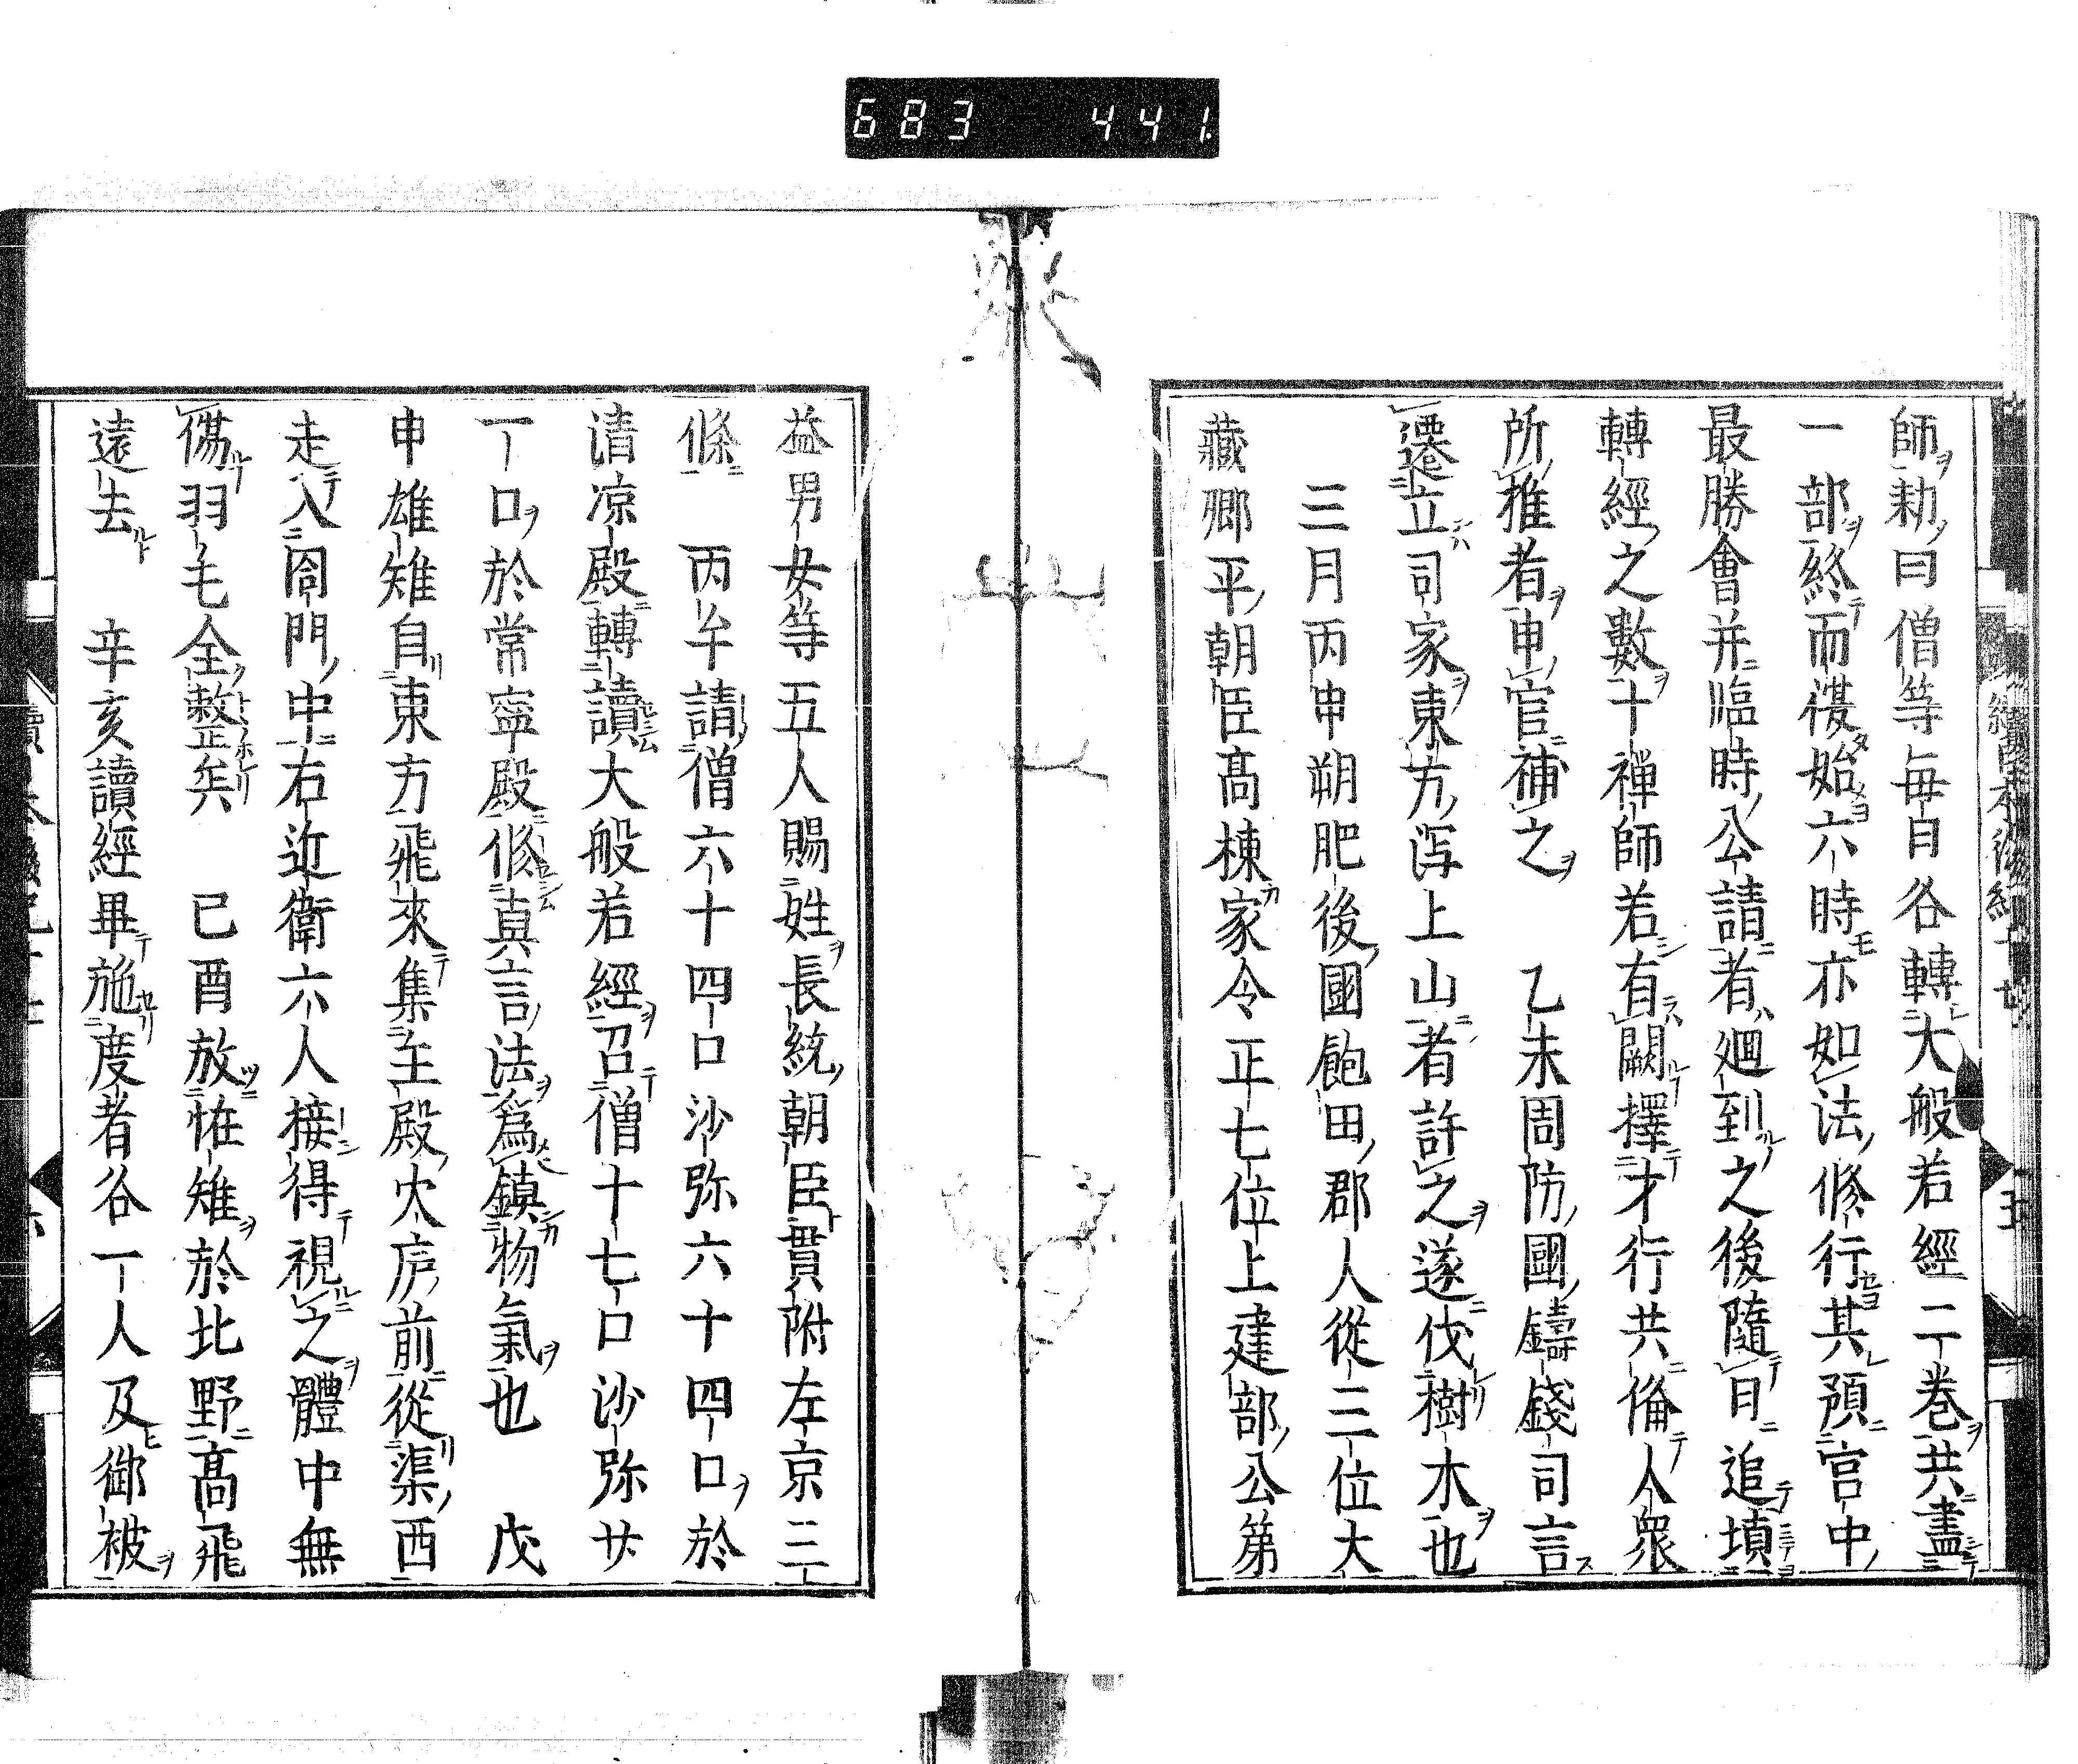 683 441.
師勑曰僧等毎日各轉大般若經二巻共盡
一部終而復始六時亦如法修行其預宮中
最勝會并臨時公請者廻到之後隨日追塡
轉經之數十禪師若有闕擇才行共倫人衆
所推者申官補之 乙未周防國鑄錢司言
遷立司家東方潟上山者許之遂伐樹木也
三月丙申朔肥後國飽田郡人從三位大
藏卿平朝臣高棟家令正七位上建部公第
益男女等五人賜姓長統朝臣貫附左京三
條 丙午請僧六十四口沙弥六十四口於
清凉殿轉讀大般若經召僧十七口沙弥廿
一口於常寧殿修真言法爲鎮物氣也 戊
申雄雉自東方飛來集主殿大庐前從渠西
走入閤門中右近衛六人接得視之體中無
傷羽毛全整矣 已酉放恠雉於北野高飛
遠去 辛亥讀經畢施度者各一人及御被